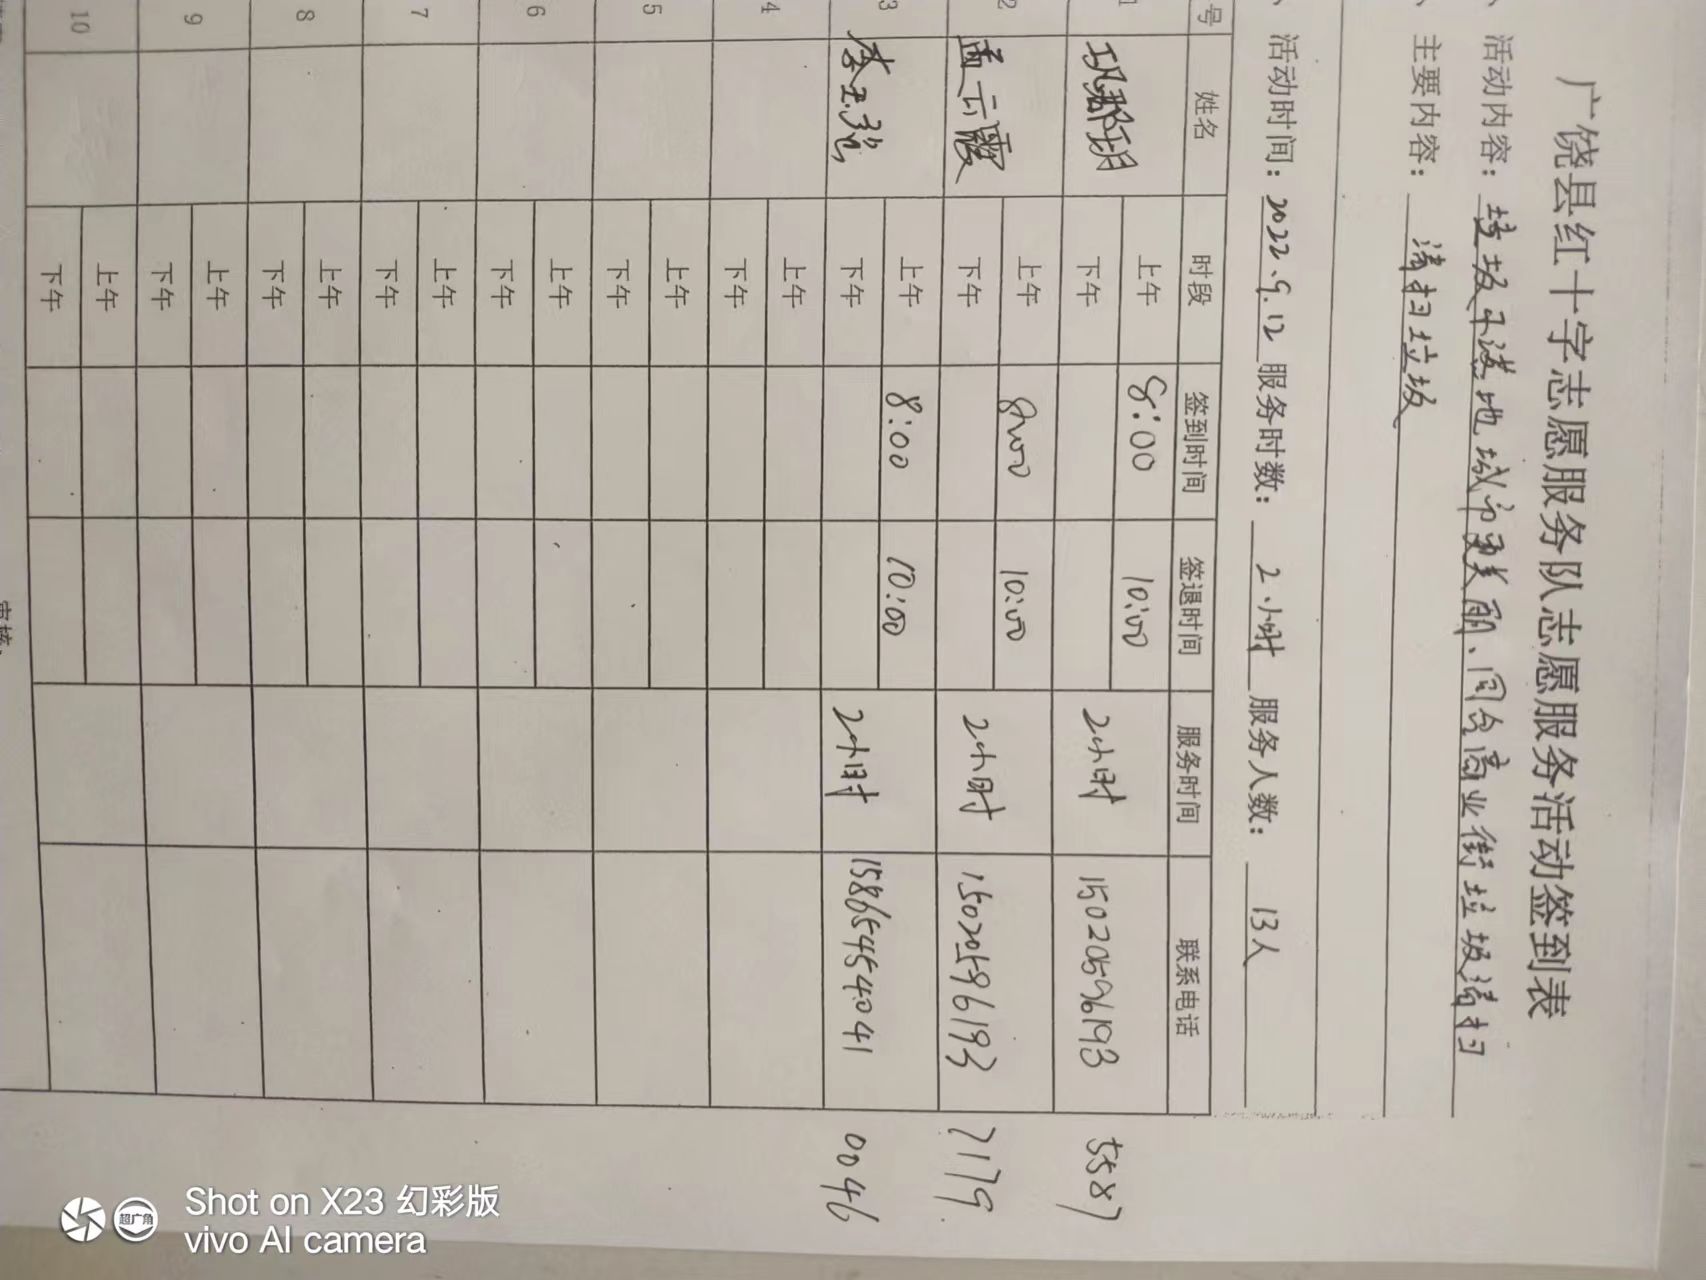 广饶县红十字志愿服务队志愿服务活动签到表
、活动内容：垃圾不落地 城市更美丽、同台商业街垃圾清扫
、主要内容：清扫垃圾
、活动时间：2022.9.12 服务时数：2小时 服务人数：13人
号 姓名 时段 签到时间 签退时间 服务时间 联系电话
1 上午 8:00 10:00 2小时 15020596193 5587
下午
2 孟云霞 上午 8:00 10:00 2小时 15020596193 7179
下午
3 李玉 上午 8:00 10:00 2小时 15865454041 0046
下午
4 上午
下午
5 上午
下午
6 上午
下午
7 上午
下午
8 上午
下午
9 上午
下午
10 上午
下午
审核
Shot on X23 幻彩版
vivo AI camera
超广角